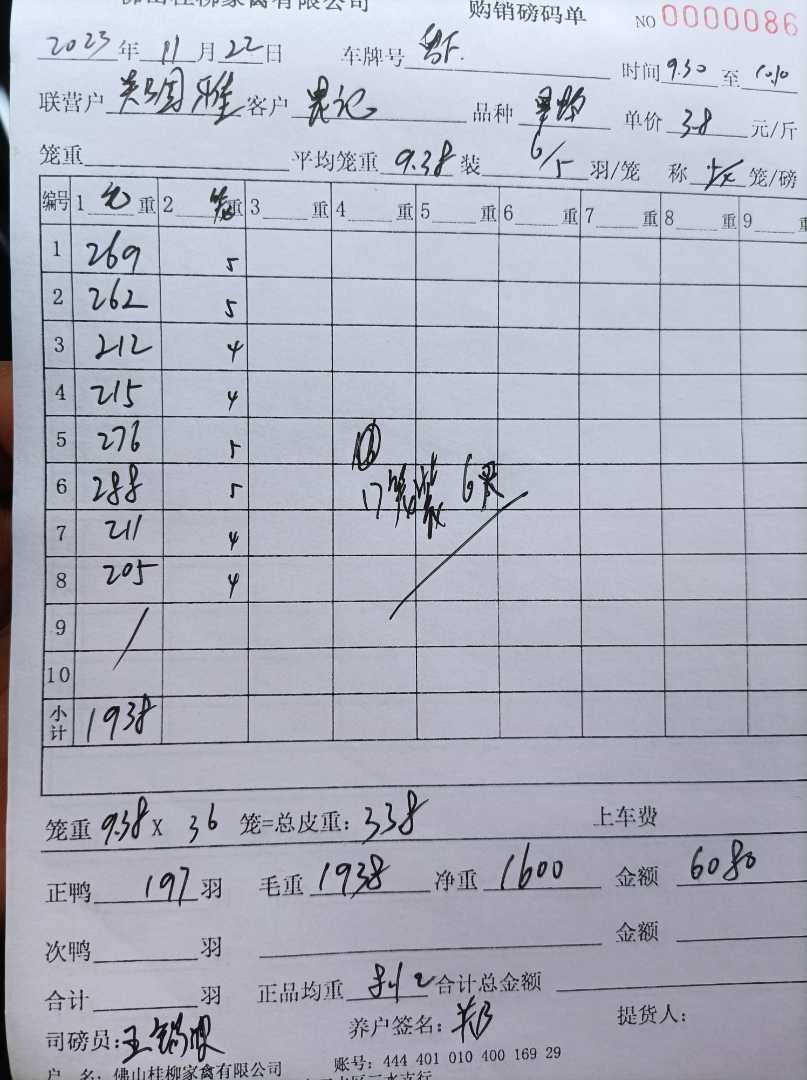 佛山桂柳家禽有限公司 购销磅码单 NO 0000086
2023年11月22日 车牌号 时间 9.30 至 10.10
联营户 客户 记 品种 单价 3.8 元/斤
笼重 平均笼重 9.38 装 6/5 羽/笼 称 笼/磅
编号 1 毛 重 2 笼 重 3 重 4 重 5 重 6 重 7 重 8 重 9 重
1 269 5
2 262 5
3 212 4
4 215 4
5 276 5
6 288 5
7 211 4
8 205 4
9
10
17笼装 6只
小计 1938
笼重 9.38 X 36 笼=总皮重: 338 上车费
正鸭 197 羽 毛重 1938 净重 1600 金额 6080
次鸭 羽 金额
合计 羽 正品均重 8.12 合计总金额
司磅员: 王 养户签名: 提货人:
户 名: 佛山桂柳家禽有限公司 账号: 444 401 010 400 169 29